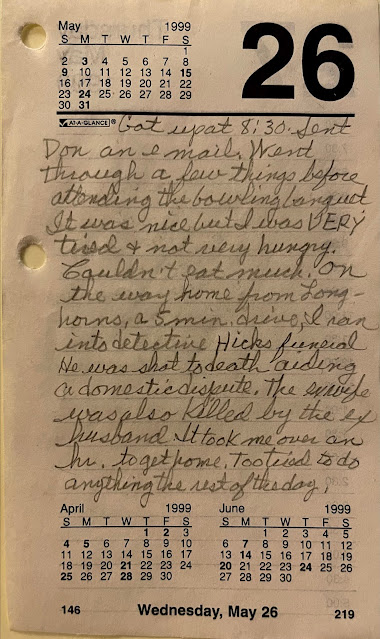 May 1999
26
S M T W T F S
1
2 3 4 5 6 7 8
9 10 11 12 13 14 15
16 17 18 19 20 21 22
23 24 25 26 27 28 29
30 31
AT-A-GLANCE®
Got up at 8:30. Sent
Don an e mail. Went
through a few things before
attending the bowling banquet
It was nice but I was VERY
tired & not very hungry.
Couldn't eat much. On
the way home from Long-
horns, a 5 min. drive, I ran
into detective Hicks funeral
He was shot to death aiding
a domestic dispute. The exwife
was also killed by the ex
husband. It took me over an
hr. to get home. Too tired to do
anything the rest of the day.
April 1999
S M T W T F S
1 2 3
4 5 6 7 8 9 10
11 12 13 14 15 16 17
18 19 20 21 22 23 24
25 26 27 28 29 30
June 1999
S M T W T F S
1 2 3 4 5
6 7 8 9 10 11 12
13 14 15 16 17 18 19
20 21 22 23 24 25 26
27 28 29 30
146 Wednesday, May 26 219